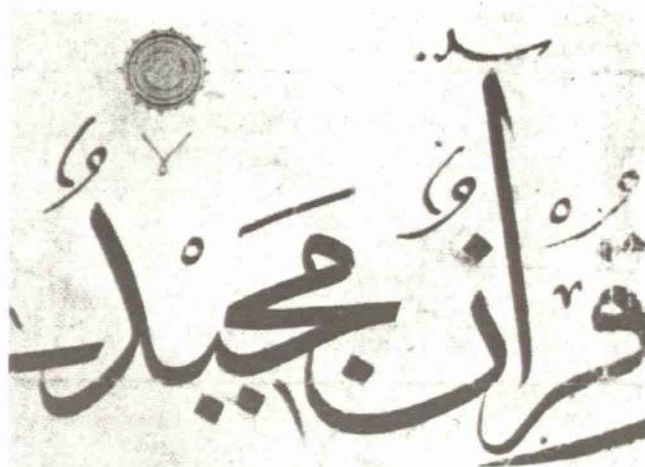 قُرْآنٌ مَجِيْدٌ